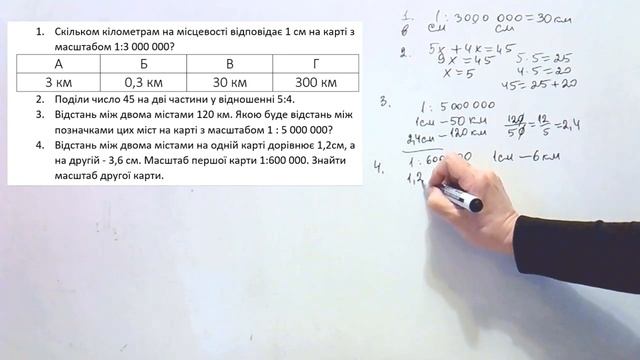 1. Скільком кілометрам на місцевості відповідає 1 см на карті з
масштабом 1:3 000 000?
А Б В Г
3 км 0,3 км 30 км 300 км
2. Поділи число 45 на дві частини у відношенні 5:4.
3. Відстань між двома містами 120 км. Якою буде відстань між
позначками цих міст на карті з масштабом 1 : 5 000 000?
4. Відстань між двома містами на одній карті дорівнює 1,2см, а
на другій - 3,6 см. Масштаб першої карти 1:600 000. Знайти
масштаб другої карти.
1. 1 : 3000 000 = 30 км
В см см
2. 5x + 4x = 45
9x = 45
x = 5
5·5=25
4·5=20
45=25+20
3. 1 : 5 000 000
1см – 50 км
2,4см – 120 км
120/50 = 12/5 = 2,4
4. 1см – 6 км
1,2